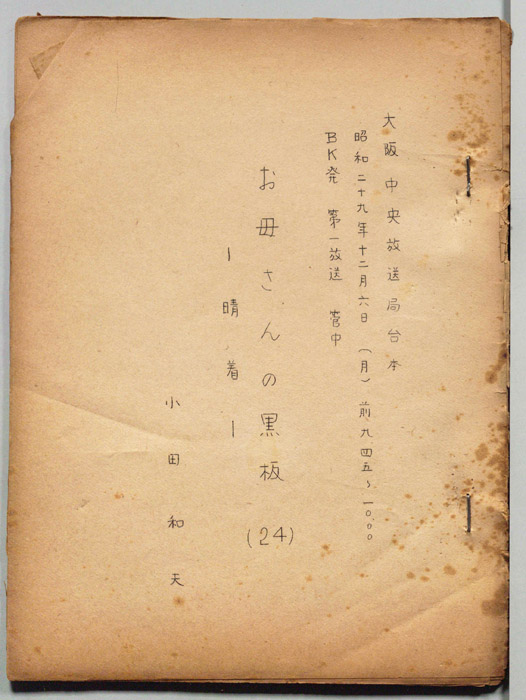 大阪中央放送局台本
昭和二十九年十二月六日(月)前九.四五〜一〇.〇〇
BK発 第一放送 管中
お母さんの黒板(24)
ー晴着ー
小田和夫